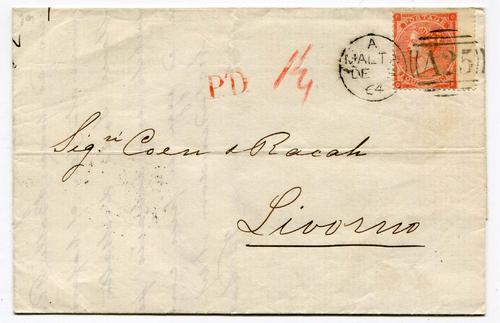 A
MALTA
DE
64
POSTAGE
A25
P.D.
1/4
Sigri Coen & Racah
Livorno